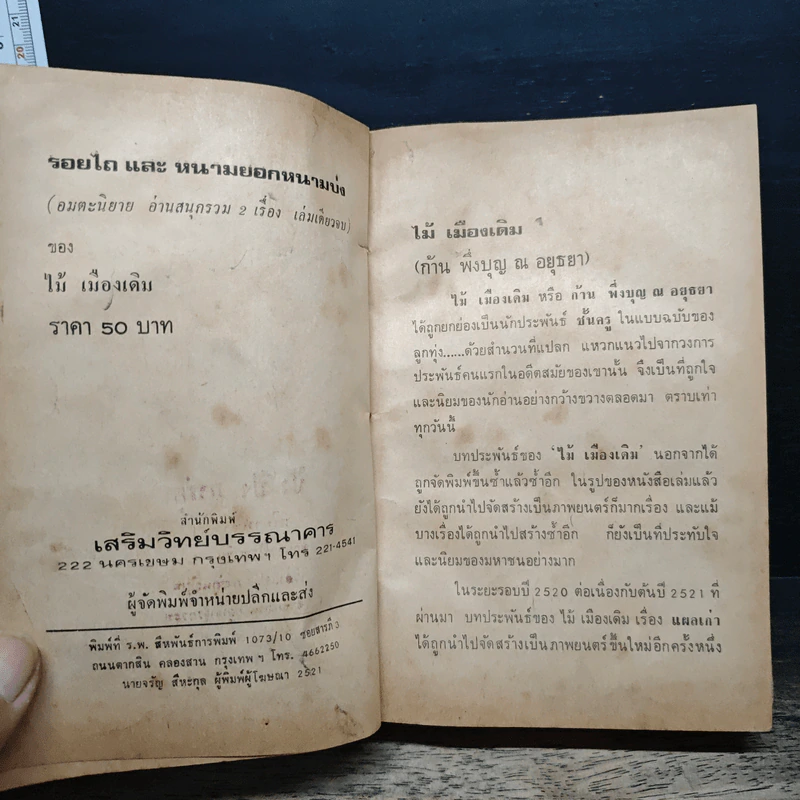 รอยไถ และ หนามยอกหนามบ่ง
(อมตะนิยาย อ่านสนุกรวม 2 เรื่อง เล่มเดียวจบ)
ของ
ไม้ เมืองเดิม
ราคา 50 บาท
สำนักพิมพ์
เสริมวิทย์บรรณาคาร
222 นครเขษม กรุงเทพฯ โทร 221-4541
ผู้จัดพิมพ์จำหน่ายปลีกและส่ง
พิมพ์ที่ ร.พ. สีหพันธ์การพิมพ์ 1073/10 ซอยสารภี 3
ถนนตากสิน คลองสาน กรุงเทพฯ โทร. 4662250
นายจรัญ สีหะกุล ผู้พิมพ์ผู้โฆษณา 2521
ไม้ เมืองเดิม
(ก้าน พึ่งบุญ ณ อยุธยา)
ไม้ เมืองเดิม หรือ ก้าน พึ่งบุญ ณ อยุธยา
ได้ถูกยกย่องเป็นนักประพันธ์ ชั้นครู ในแบบฉบับของ
ลูกทุ่ง......ด้วยสำนวนที่แปลก แหวกแนวไปจากวงการ
ประพันธ์คนแรกในอดีตสมัยของเขานั้น จึงเป็นที่ถูกใจ
และนิยมของนักอ่านอย่างกว้างขวางตลอดมา ตราบเท่า
ทุกวันนี้
บทประพันธ์ของ 'ไม้ เมืองเดิม' นอกจากได้
ถูกจัดพิมพ์ขึ้นซ้ำแล้วซ้ำอีก ในรูปของหนังสือเล่มแล้ว
ยังได้ถูกนำไปจัดสร้างเป็นภาพยนตร์ก็มากเรื่อง และแม้
บางเรื่องได้ถูกนำไปสร้างซ้ำอีก ก็ยังเป็นที่ประทับใจ
และนิยมของมหาชนอย่างมาก
ในระยะรอบปี 2520 ต่อเนื่องกับต้นปี 2521 ที่
ผ่านมา บทประพันธ์ของ ไม้ เมืองเดิม เรื่อง แผลเก่า
ได้ถูกนำไปจัดสร้างเป็นภาพยนตร์ขึ้นใหม่อีกครั้งหนึ่ง